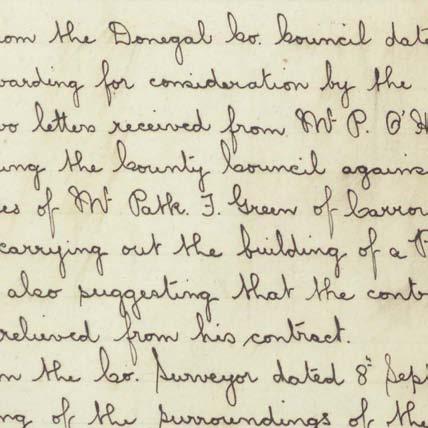 rom the Donegal Co. Council date
warding for consideration by the
wo letters received from Mr P. O'H
ing the County Council agains
es of Mr Patk. J. Green of Carrow
carrying out the building of a P
also suggesting that the cont
relieved from his contract.
m the Co. Surveyor dated 8th Sep
ng of the surroundings of the